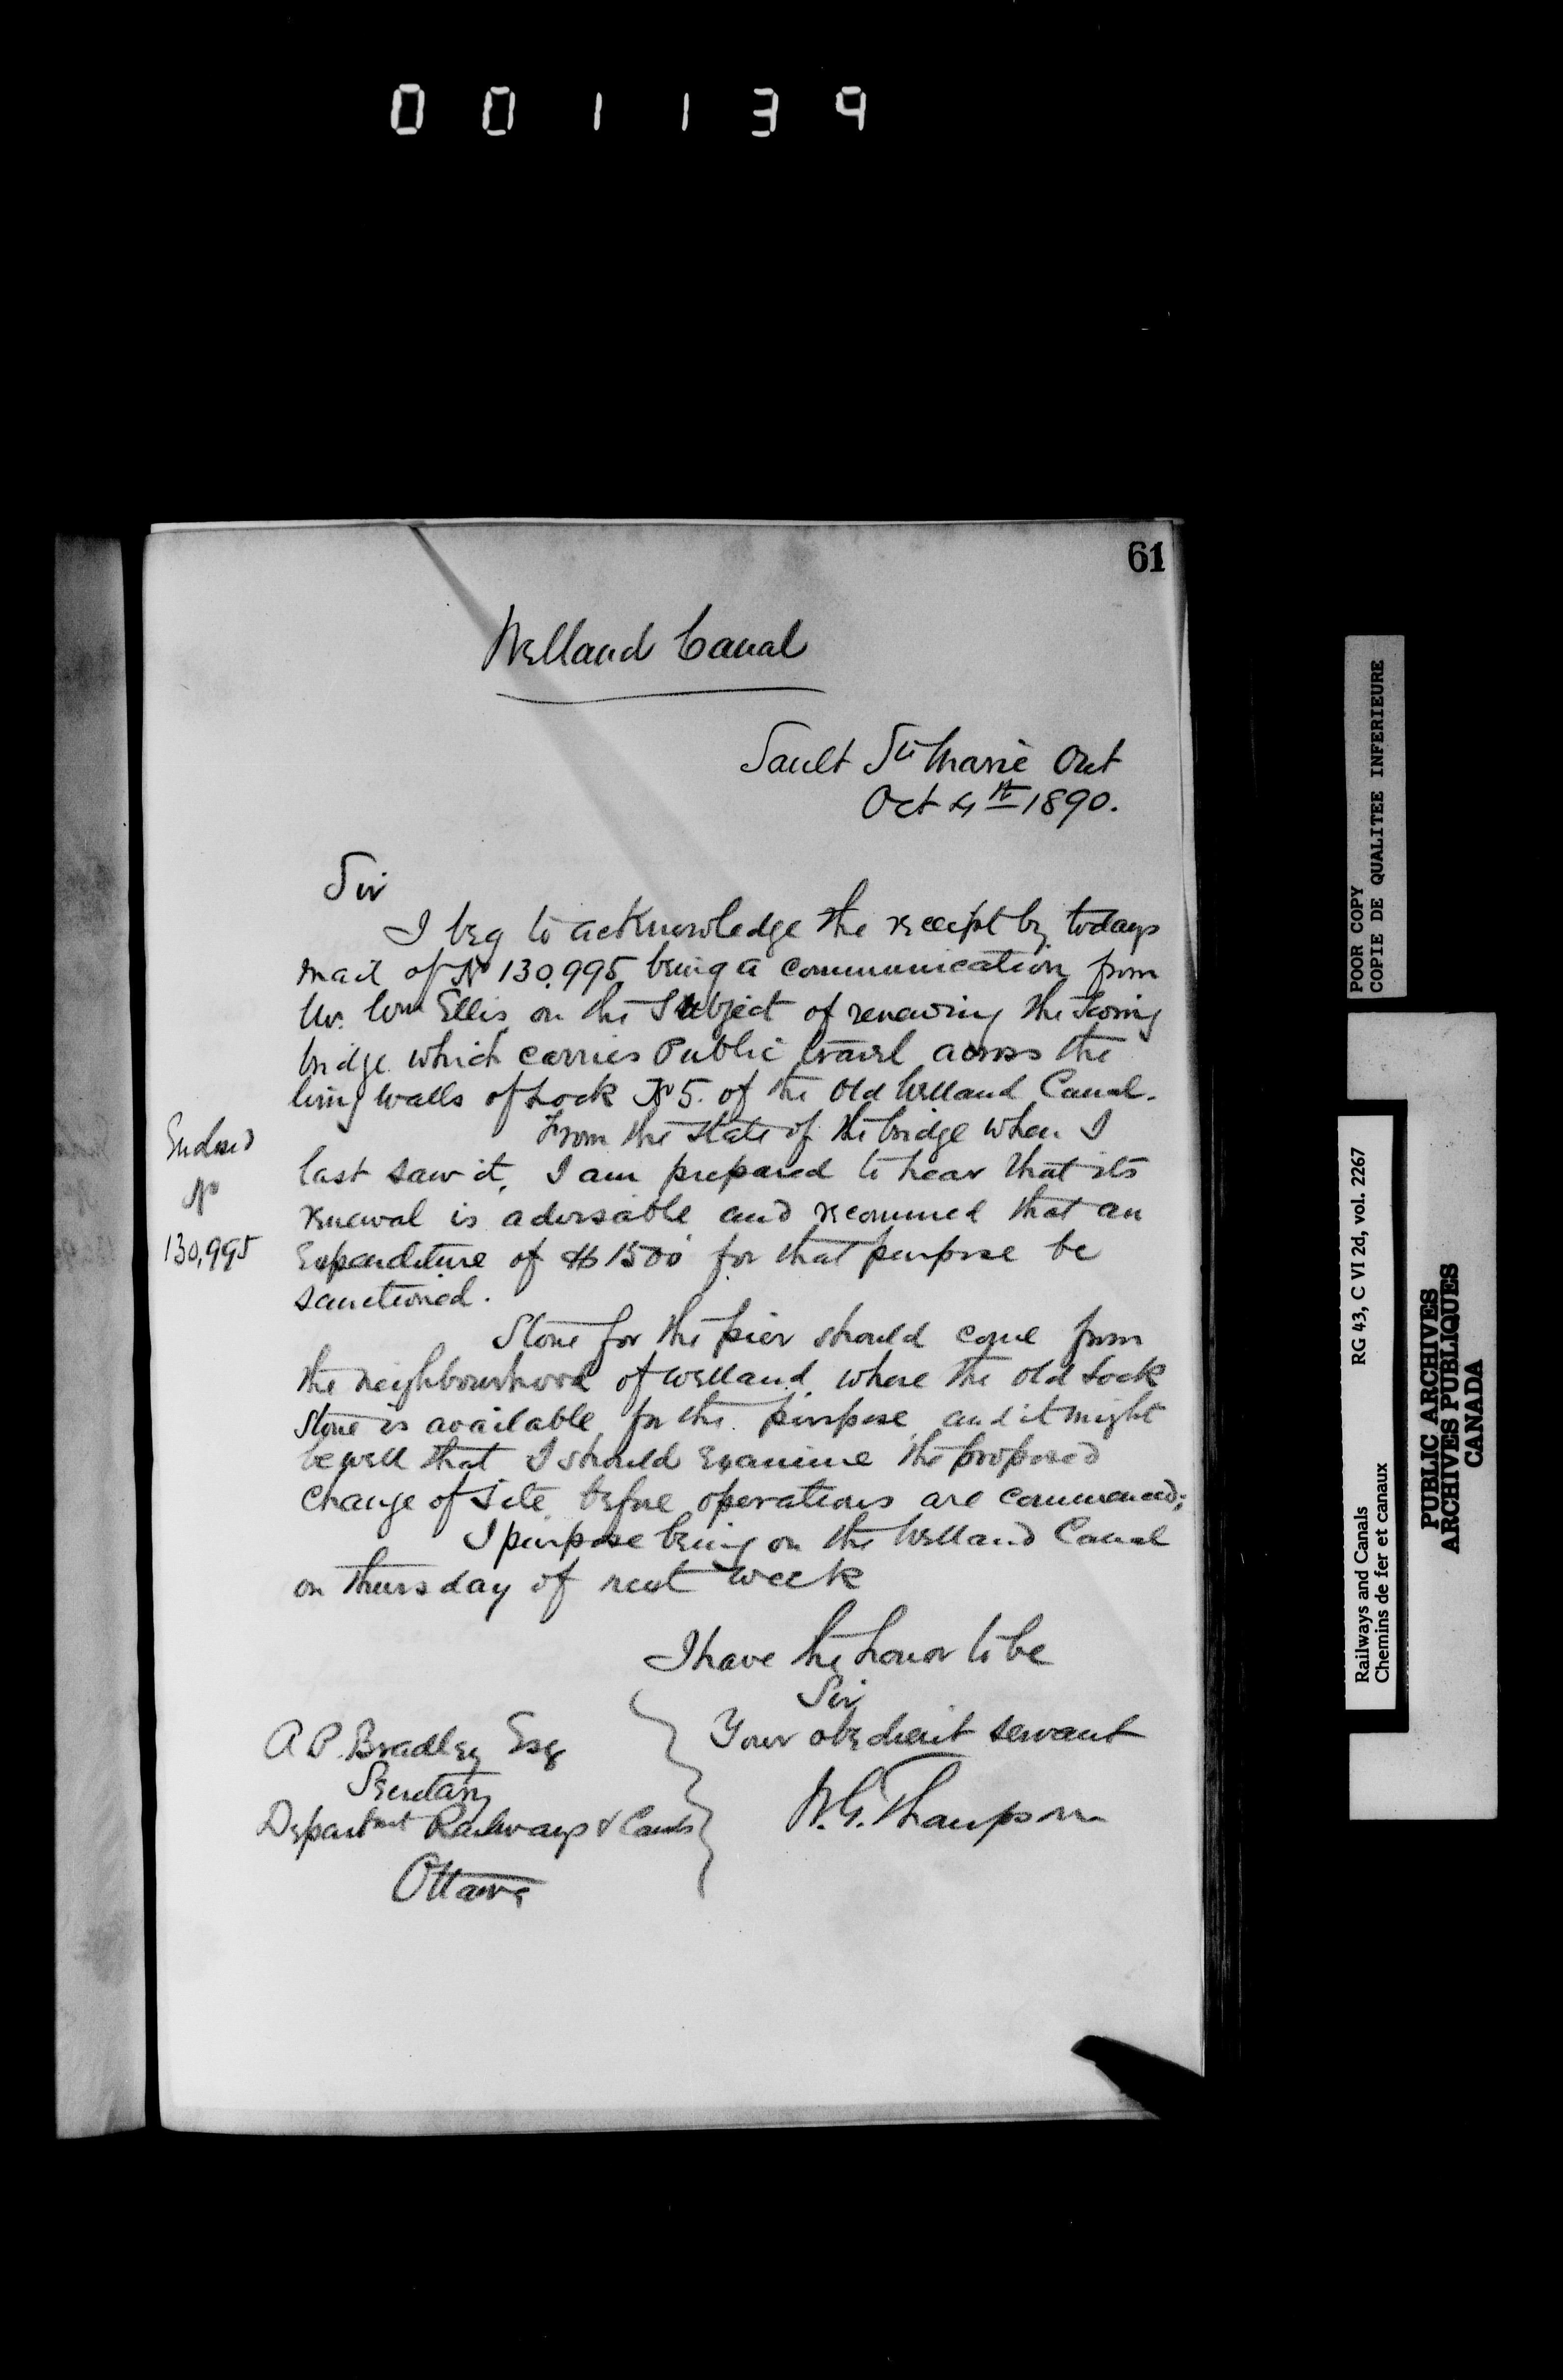 001139
61
Welland Canal
Sault Ste Marie Ont
Oct 4th 1890.
Sir
I beg to acknowledge the receipt by todays
mail of No 130,995 being a communication from
Mr. Wm Ellis on the Subject of renewing the Swing
bridge which carries Public travel across the
wing walls of Lock No 5. of the Old Welland Canal.
From the state of the bridge when I
last saw it, I am prepared to hear that its
renewal is advisable and recommend that an
Expenditure of $1500 for that purpose be
sanctioned.
Enclosed
No
130,995
Stone for the pier should come from
the neighbourhood of Welland, where the old Lock
Stone is available for the purpose and it might
be well that I should Examine the proposed
change of Site before operations are commenced;
I purpose being on the Welland Canal
on Thursday of next week
I have the honor to be
Sir
Your obedient servant
W.G. Thompson
A P. Bradley Esq
Secretary
Department Railways & Canals
Ottawa
POOR COPY
COPIE DE QUALITEE INFERIEURE
RG 43, C VI 2d, vol. 2267
Railways and Canals
Chemins de fer et canaux
PUBLIC ARCHIVES
ARCHIVES PUBLIQUES
CANADA